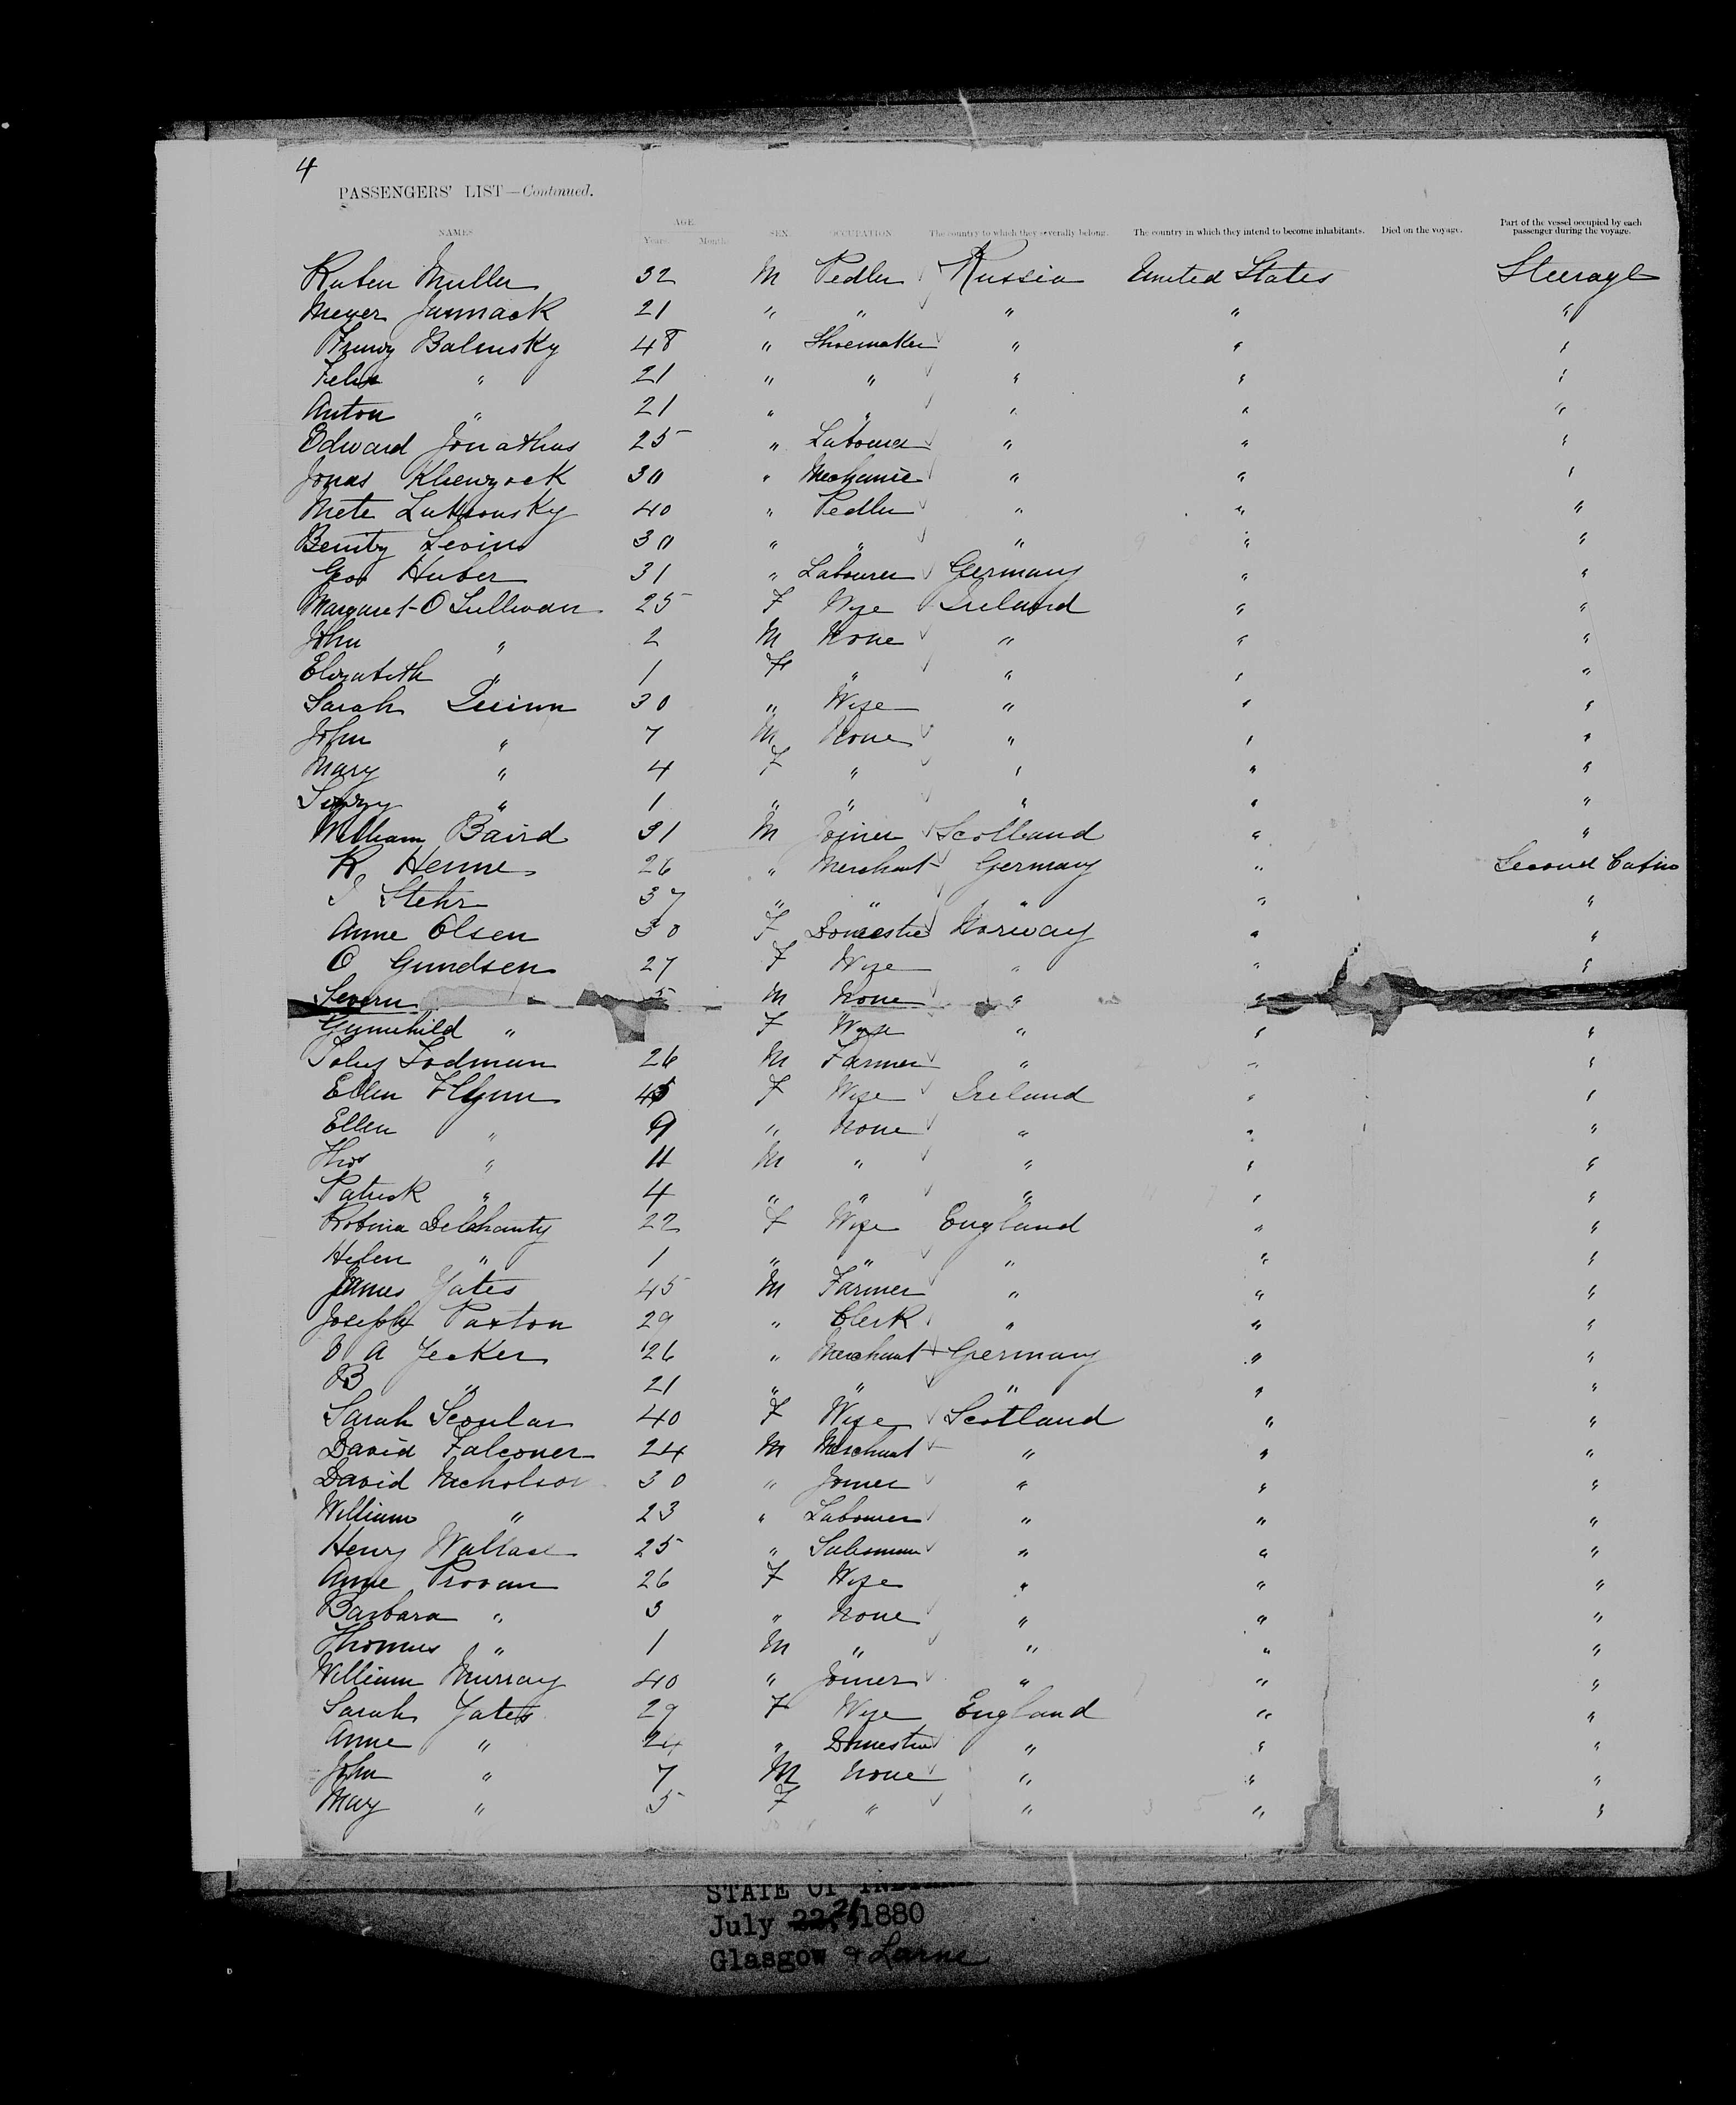 4
PASSENGERS' LIST—Continued.
NAMES AGE Years. Months. SEX OCCUPATION The country to which they severally belong. The country in which they intend to become inhabitants. Died on the voyage. Part of the vessel occupied by each passenger during the voyage.
Ruben Muller 32 M Pedler Russia United States Steerage
Meyer 21 " " " " "
Balensky 48 " Shoemaker " " "
Felix " 21 " " " " "
Anton " 21 " " " " "
Edward Jonathus 25 " Labourer " " "
Jonas 30 " Mechanic " " "
Mete 40 " Pedler " " "
Levin 30 " " " " "
Geo Huber 31 " Labourer Germany " "
Margaret O Sullivan 25 F Wife Ireland " "
John " 2 M None " " "
Elizabeth " 1 F " " " "
Sarah Quinn 30 " Wife " " "
John " 7 M None " " "
Mary " 4 F " " " "
" 1 " " " " "
William Baird 31 M Joiner Scotland " "
R Henne 26 " Merchant Germany " Second Cabin
Stehr 37 " " " " "
Anne Olsen 30 F Domestic Norway " "
O Gundsen 27 F Wife " " "
Severn 5 M None " "
Gunnhild " F Wife " " "
Lodman 26 M Farmer " " "
Ellen Flynn 45 F Wife Ireland " "
Ellen " 9 " None " " "
Thos " 11 M " " " "
Patrick " 4 " " " " "
Robina Delahanty 22 F Wife England " "
Helen " 1 " " " " "
James Yates 45 M Farmer " " "
Joseph Paxton 29 " Clerk " " "
O A Jecker 26 " Merchant Germany " "
B " 21 " " " " "
Sarah Scoular 40 F Wife Scotland " "
David Falconer 24 M Merchant " " "
David Nicholson 30 " Joiner " " "
William " 23 " Labourer " " "
Henry Wallace 25 " Salesman " " "
Anne Provan 26 F Wife " " "
Barbara " 3 " None " " "
Thomas " 1 M " " " "
William Murray 40 " Joiner " " "
Sarah Yates 29 F Wife England " "
Anne " 24 " Domestic " " "
John " 7 M None " " "
May " 5 F " " " "
STATE OF INDIANA
July 22, 21 1880
Glasgow & Larne